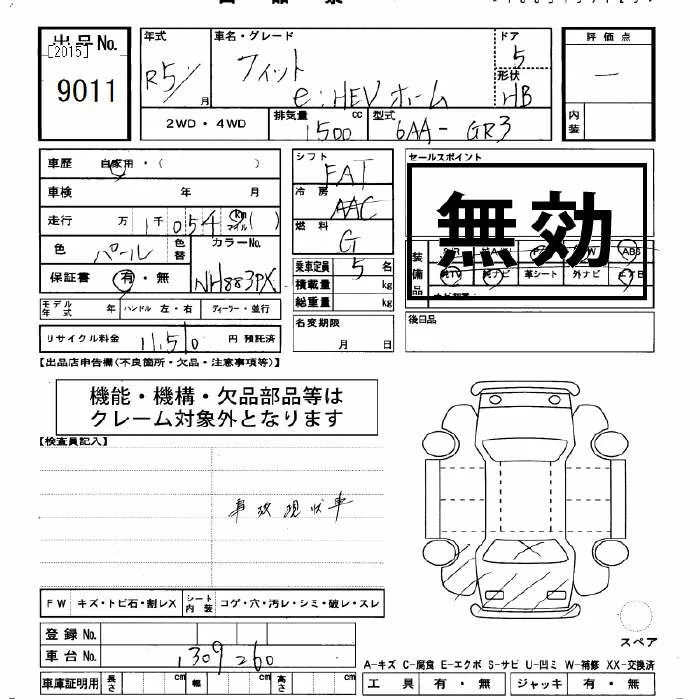 出品No. [2015]
9011
年式 R5/ 月
車名・グレード フィット
e:HEV ホーム
ドア 5
形状 HB
評価点 一
内装
2WD・4WD 排気量 1500 cc 型式 6AA- GR3
車歴 自家用・( )
車検 年 月
走行 万 1千 054 km マイル ( )
色 パール 色替 カラーNo.
保証書 有・無 NH883PX
モデル年式 年 ハンドル 左・右 ディーラー・並行
リサイクル料金 11,510 円 預託済
シフト FAT
冷房 AAC
燃料 G
乗車定員 5 名
積載量 kg
総重量 kg
名変期限 月 日
セールスポイント
無効
装備品 ABS
純TV 純ナビ 革シート 外ナビ
後日品
【出品店申告欄(不良箇所・欠品・注意事項等)】
機能・機構・欠品部品等は
クレーム対象外となります
【検査員記入】
事故現状車
FW キズ・トビ石・割レX シート内装 コゲ・穴・汚レ・シミ・破レ・スレ
登録No.
車台No. 1309260
車庫証明用 長さ cm 幅 cm 高さ cm
スペア
A-キズ C-腐食 E-エクボ S-サビ U-凹ミ W-補修 XX-交換済
工具 有・無 ジャッキ 有・無